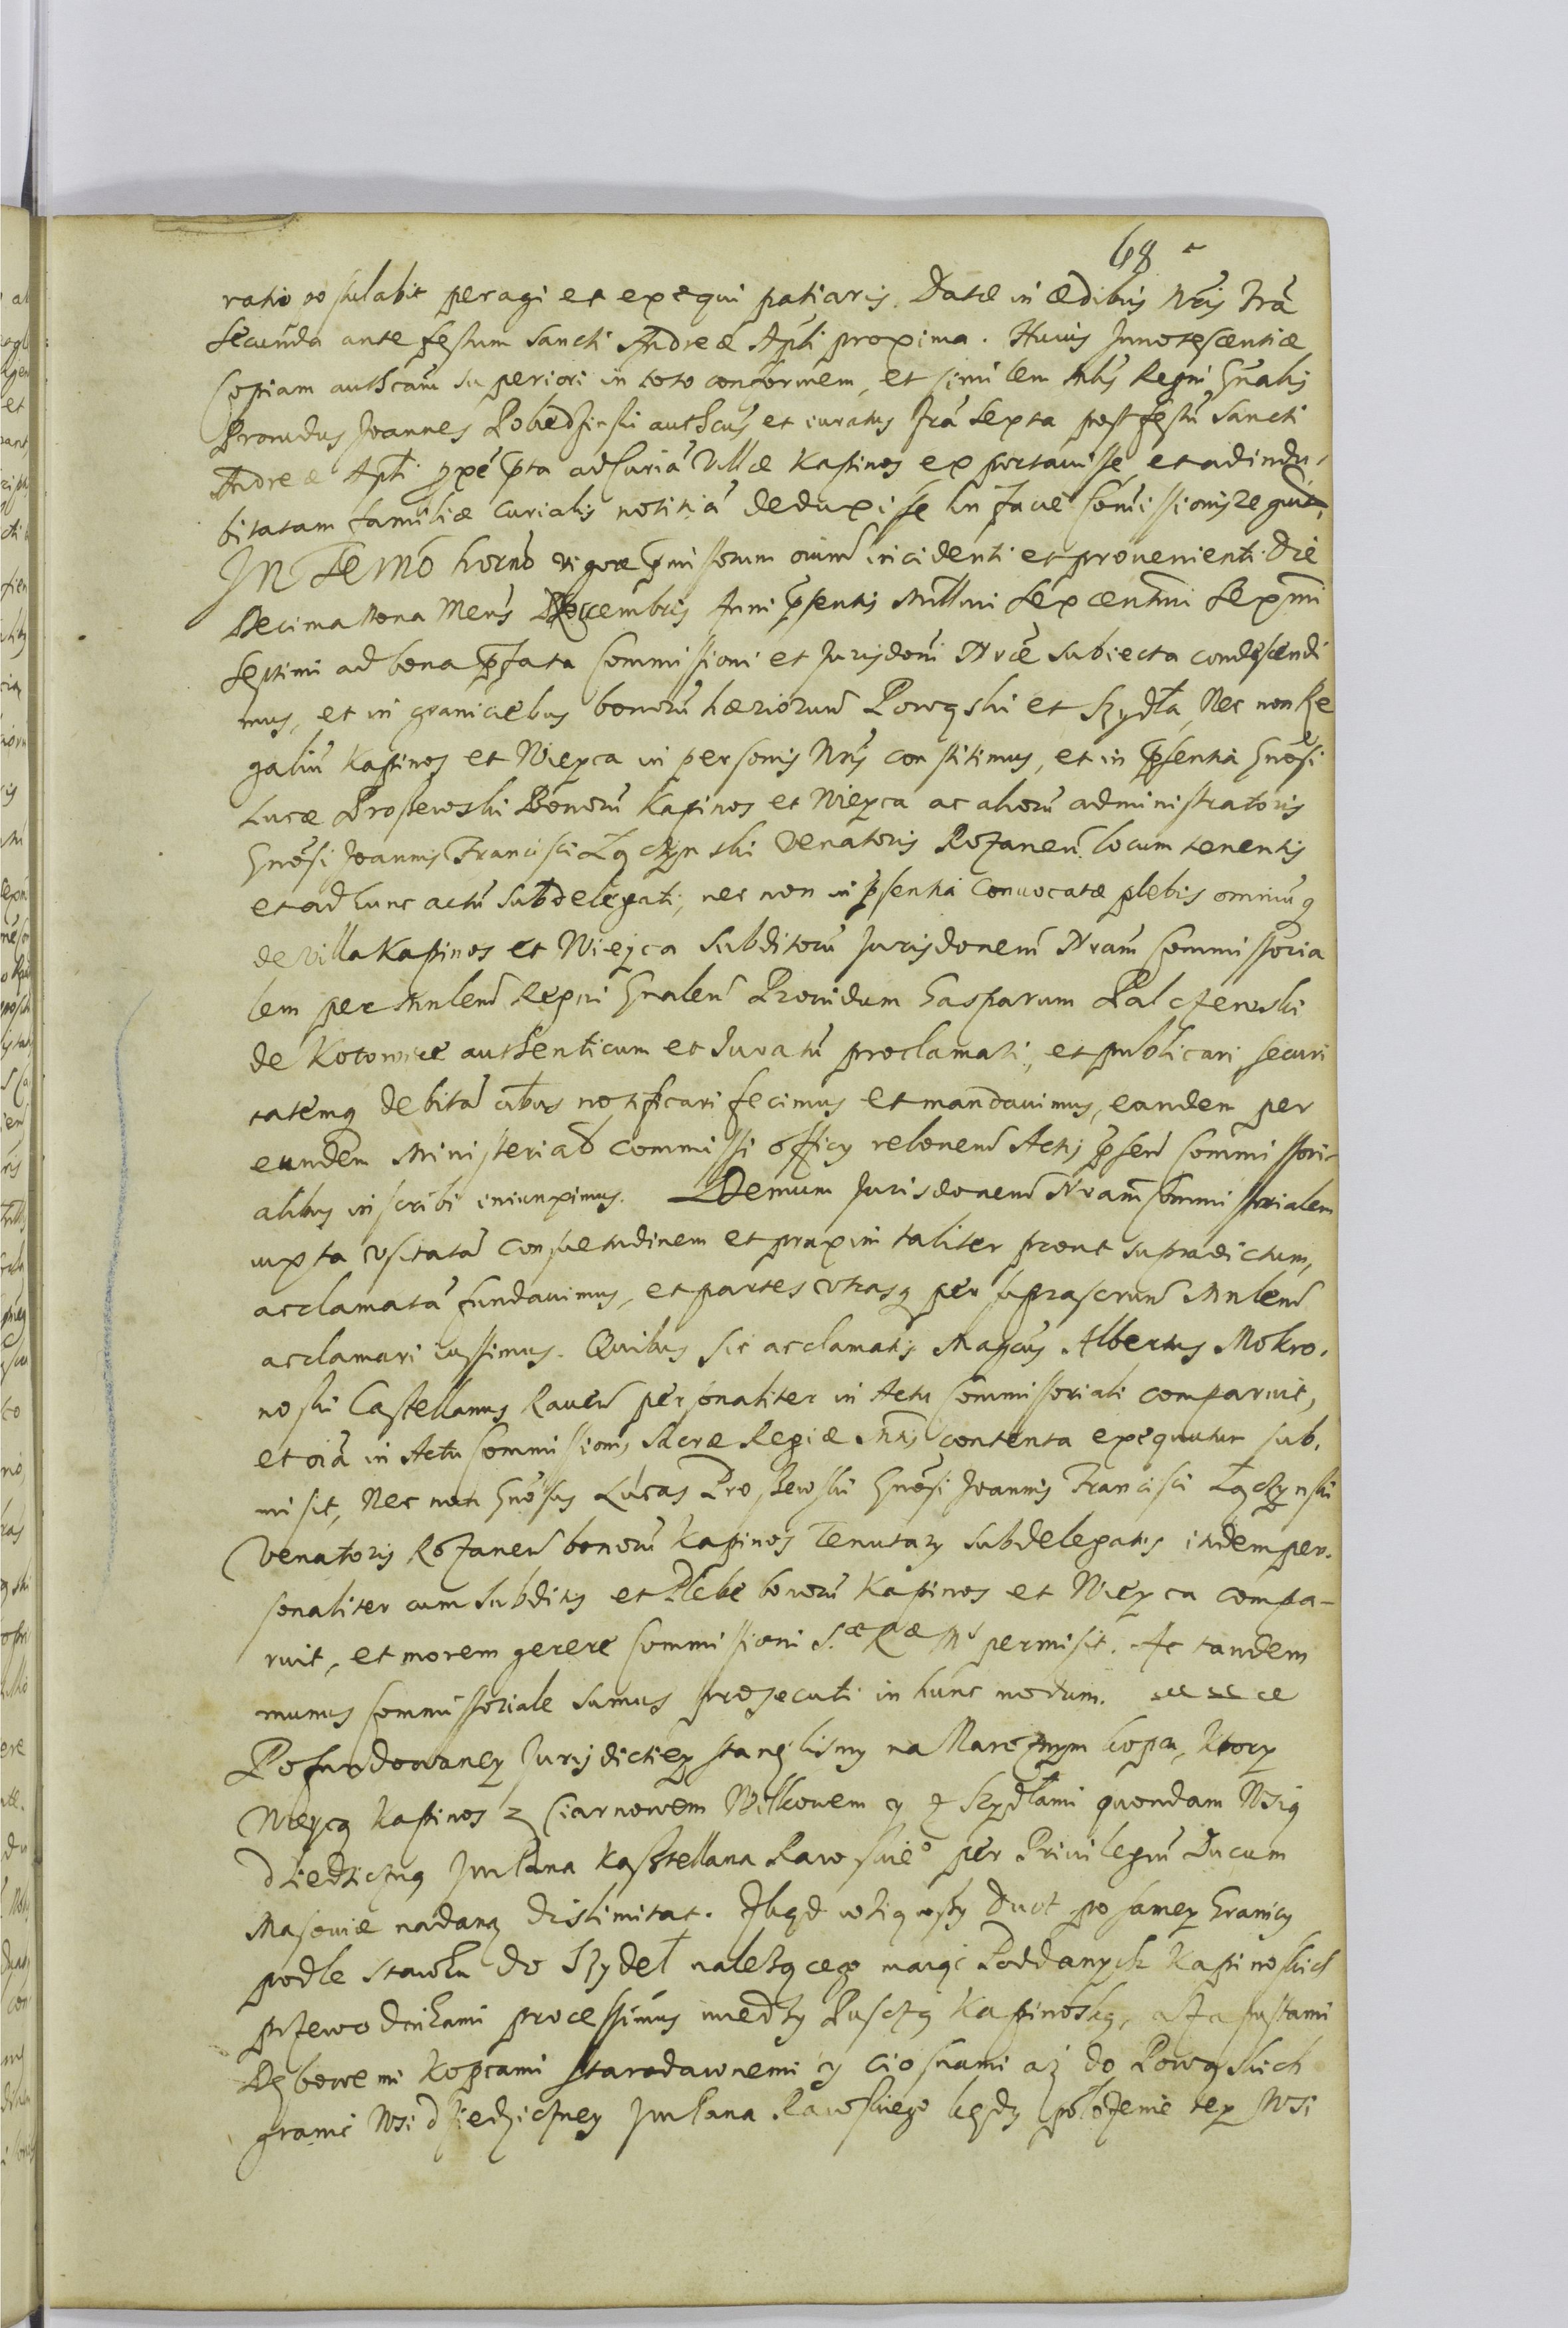 68
ratio postulabit peragi et exequi patiaris. Datæ in ædibus Nris Fra
secunda ante festum Sancti Andreæ Apli proxima. Huius Innotescentiæ
Copiam authcam superiori in toto conformem, et similem Mlis Regni Gnalis
Providus Joannes Pobedzinski authcus et iuratus fra sexta post festu Sancti
Andreæ Apli pxe pta ad Curiã Villæ Kapinos exportavisse et ad indu-
bitatam familiæ curialis notitiã deduxisse in facie Comissionis
In Termo horno vigore pmissorum oium incidenti et provenienti die
Decima Nona Mens Decembris Anni psentis Millmi Sexcentmi Sexmi
Septimi ad bona pfata Commissioni et Jurisdoni Nræ subiecta condescendi
mus, et in graniciebus bonorũ hæriorum Powąski et Szydła, Nec non Re
galiũ Kapinos et Wieyca in personis Nris constitimus, et in psentia Gnosi
Lucæ Proszewski Bonorũ Kapinos et Wieyca ac aliorũ administratoris
Gnosi Joannis Francisci Łączynski Venatoris Rozanen. locum tenentis
et ad hunc actũ subdelegati, nec non in psentia convocatæ plebis omniuq
de Villa Kapinos et Wieyca subditorũ Jurisdonem Nram Commissoria
lem per Mnlem Regni Gnalem Providum Gasparum Palczewski
de Kotowice authenticum et Juratũ proclamati, et publicari securi
tatemq debitã oibus notificari fecimus et mandavimus, eandem per
eundem Ministerialẽ commissi officy relonem Actis psen Commissori-
alibus inscribi iniunximus. Demum Jurisdonem Nram Commissorialem
iuxta usitatã consuetudinem et praxim taliter prout supradictum,
acclamatã fundavimus, et partes utrasq per suprascrum Mnlem
acclamari iussimus. Quibus sic acclamatis Magcus Albertus Mokro.
noski Castellanus Raven personaliter in Actu Commissoriali comparuit,
et oiã in Actu Commissionis Sacræ Regiæ Mtis contenta exequutur sub.
misit, Nec non Gnosus Lucas Proszewski Gnosi Joannis Francisci Łączynski
Venatoris Rozanen bonorũ Kapinos Tenutary subdelegatus itidem per.
sonaliter cum subditis et Plebe bonorũ Kapinos et Wieyca compa-
ruit, et morem gerere Commissioni S.æ R.æ M permisit. Ac tandem
munus Commissoriale sumus prosecuti in hunc modum.
Pofundowaney Jurisdictiey stanęlismy na Narożnym kopcu, ktory
Wieycą Kapinos z Ciarnowem Wilkowem y z Szydłami quondam Wsią
dziedziczną Jmpana Kasztellana Rawskie° per Privilegiũ Ducum
Masoviæ nadaną dislimitat. Zkąd wziąwszy Duct po samey Granicy
podle stawku do Szydeł należącego maiąc Poddanych Kapinoskich
przewodnikami processimus miedzy Puszczą Kapinoską, a Zapustami
Dębowemi kopcami starodawnemi y ciosnami aż do Powąskich
granic Wsi dziedziczney Jmpana Rawskiego kędy położenie tey Wsi